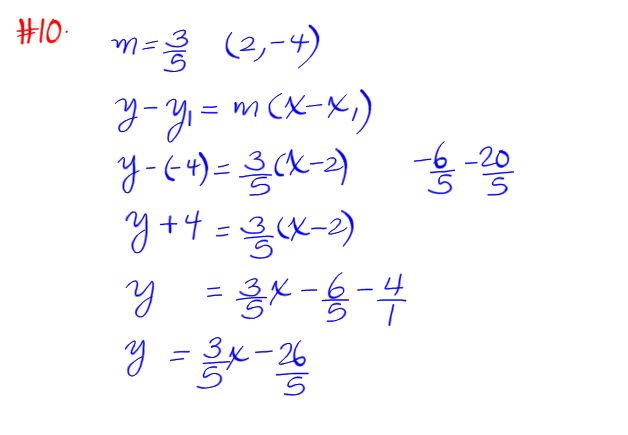 #10. m = 3/5 (2, -4)
y - y₁ = m(x - x₁)
y - (-4) = 3/5(x - 2) -6/5 - 20/5
y + 4 = 3/5(x - 2)
y = 3/5x - 6/5 - 4/1
y = 3/5x - 26/5